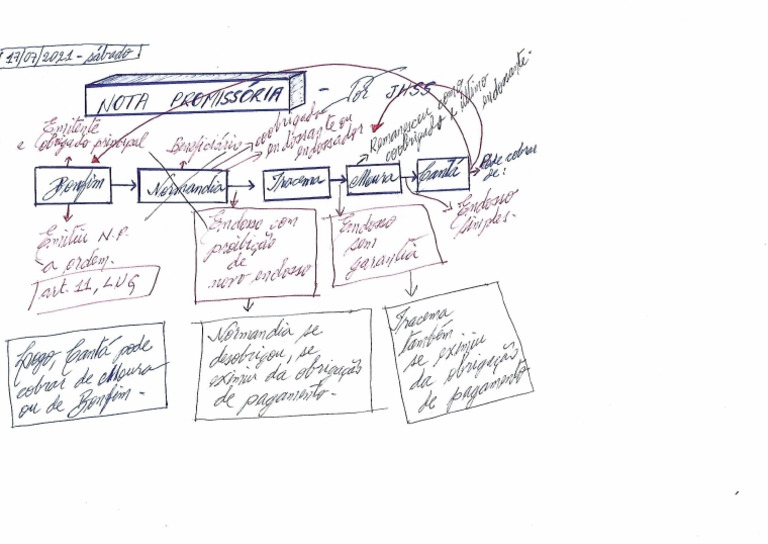 17/07/2021 - sábado
NOTA PROMISSÓRIA - Por JHSS
Emitente
e obrigado principal
Beneficiário
coobrigado
endossante ou
endossador
Remanesceu como
coobrigado e último
endossante.
Bonfim
Normandia
Iracema
Moura
Cantá
Pode cobrar
de:
Emitiu N.P.
a ordem.
art. 11, LUG
Endosso com
proibição
de
novo endosso
Endosso
sem
garantia
Endosso
simples.
Logo, Cantá pode
cobrar de Moura
ou de Bonfim.
Normandia se
desobrigou, se
eximiu da obrigação
de pagamento.
Iracema
também
se eximiu
da obrigação
de pagamento